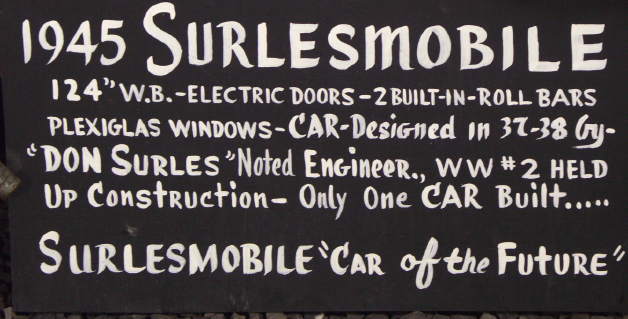 1945 SURLESMOBILE
124" W.B. - ELECTRIC DOORS - 2 BUILT-IN-ROLL BARS
PLEXIGLAS WINDOWS - CAR-Designed in 37-38 by-
"DON SURLES" Noted Engineer., WW #2 HELD
Up Construction - Only One CAR Built.....
SURLESMOBILE "CAR of the FUTURE"